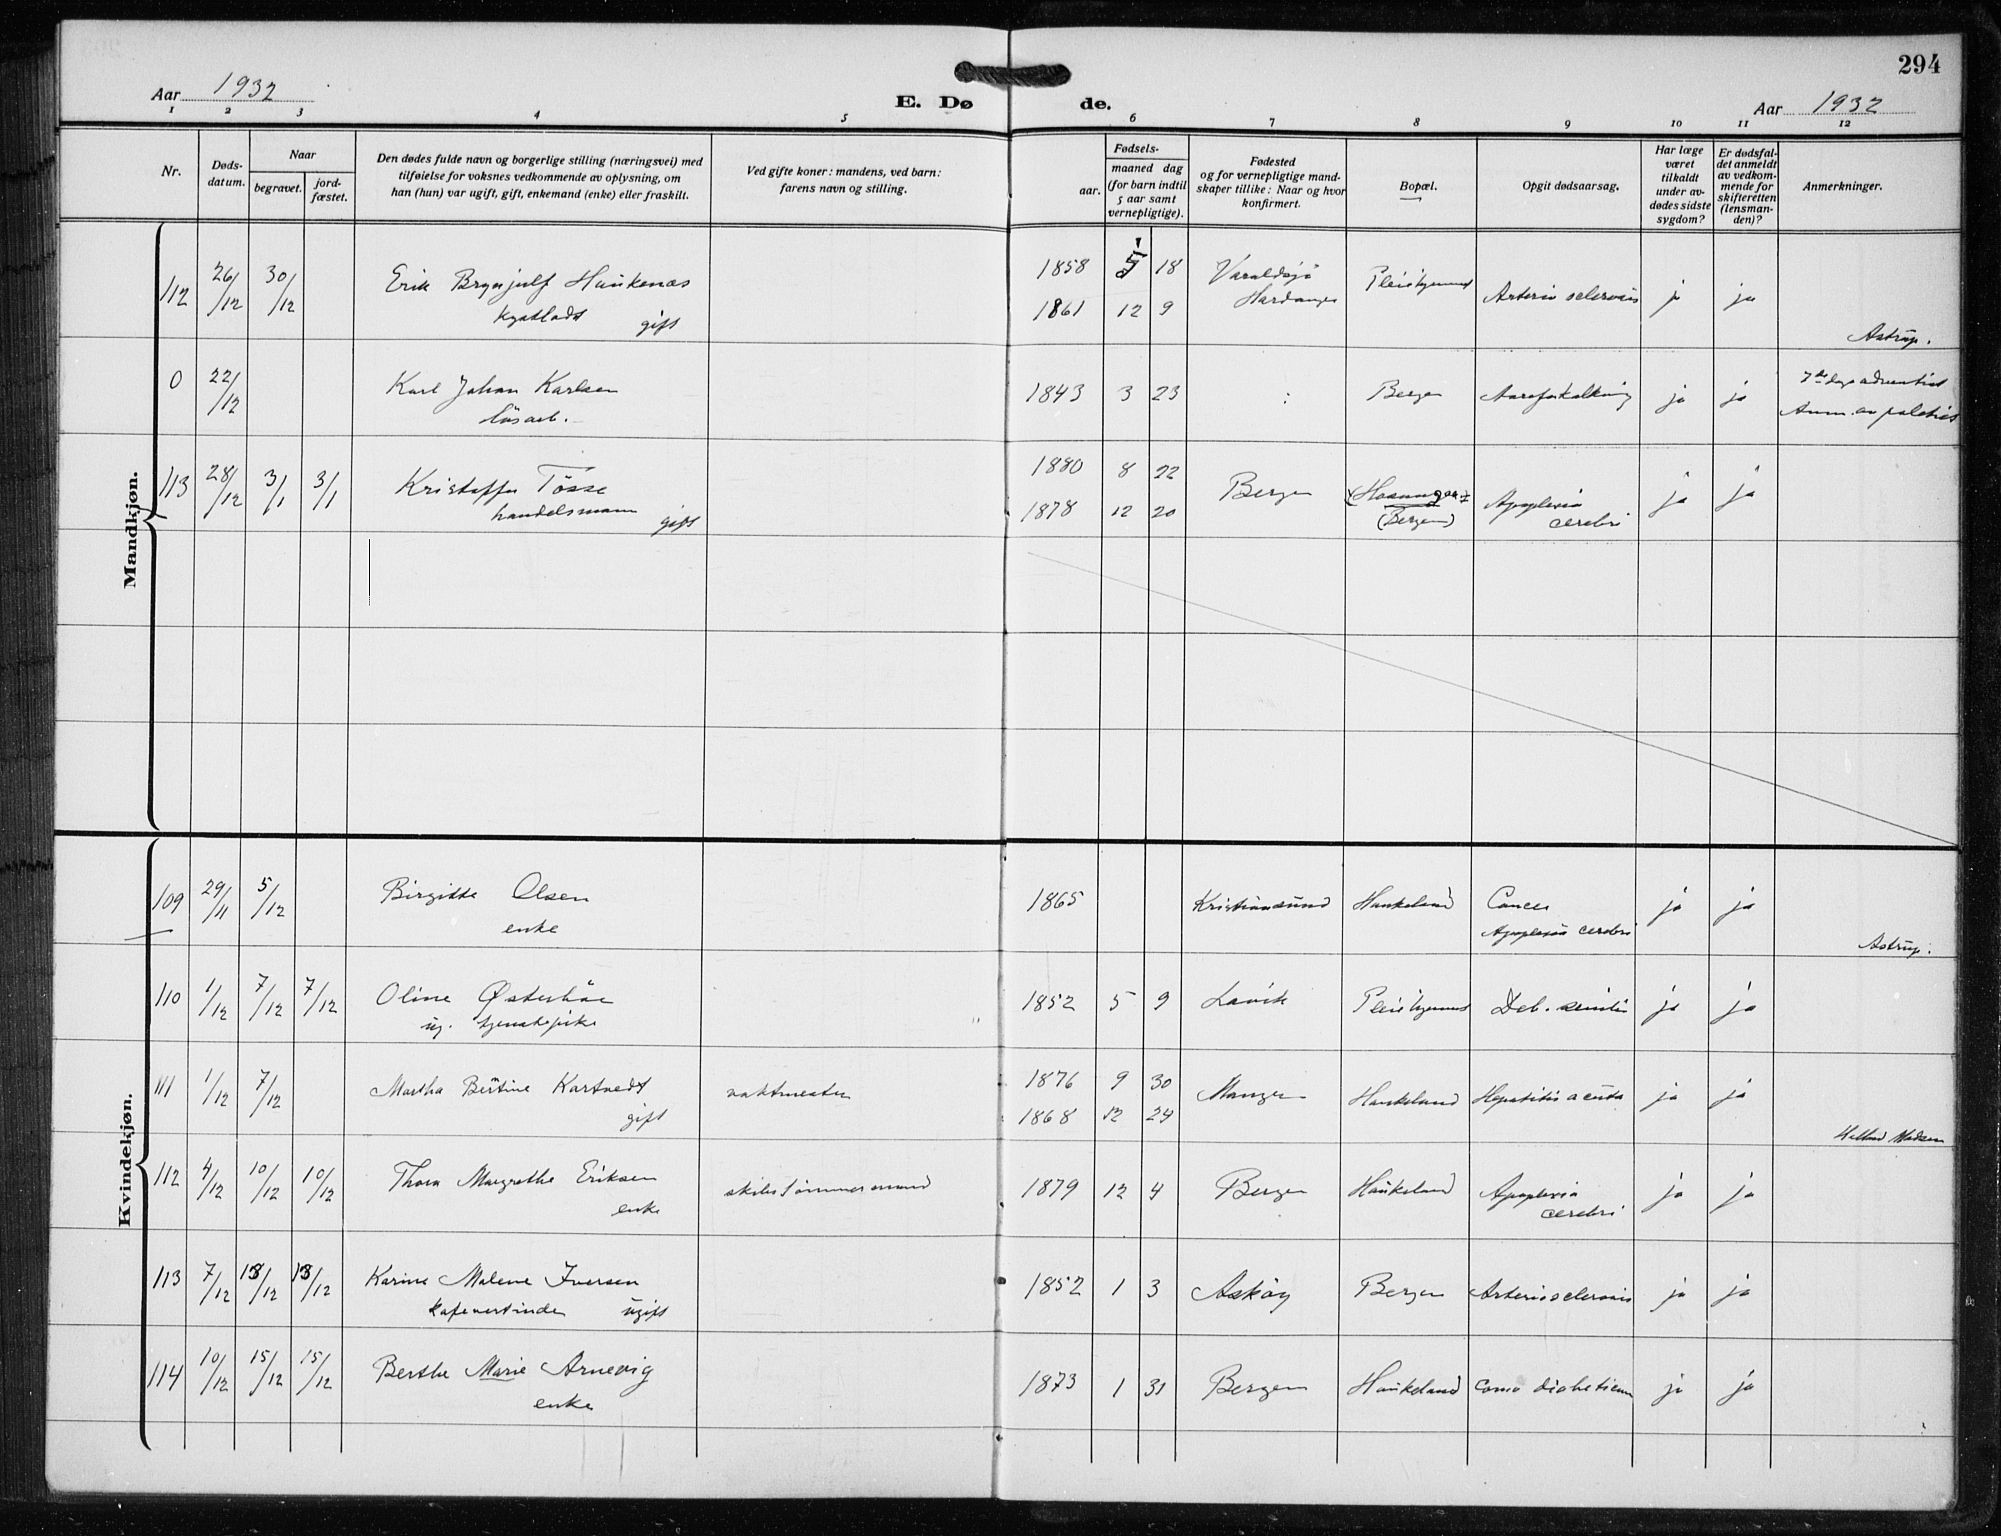 294
Aar 1932
E. Dø de.
Aar 1932
1 2 3 4 5 6 7 8 9 10 11 12
Nr.
Døds-
datum.
Naar
begravet.
jord-
fæstet.
Den dødes fulde navn og borgerlige stilling (næringsvei) med
tilføielse for voksnes vedkommende av oplysning, om
han (hun) var ugift, gift, enkemand (enke) eller fraskilt.
Ved gifte koner: mandens, ved barn:
farens navn og stilling.
Fødsels-
aar.
maaned dag
(for barn indtil
5 aar samt
vernepligtige).
Fødested
og for vernepligtige mand-
skaper tillike: Naar og hvor
konfirmert.
Bopæl.
Opgit dødsaarsag.
Har læge
været
tilkaldt
under av-
dødes sidste
sygdom?
Er dødsfal-
det anmeldt
av vedkom-
mende for
skifteretten
(lensman-
den)?
Anmerkninger.
Mandkjøn.
112 26/12 30/12 Erik Brynjulf Haukenæs 1858 18 Varaldsø Pleiehjemmet Arterio sclerosis ja ja
gift 1861 12 9 Hardanger
Astrup.
0 22/12 Karl Johan Karlsen 1843 3 23 Bergen Aareforkalkning ja ja 7de dags adventist
løsarb. Anm. av politiet
113 28/12 3/1 3/1 Kristoffer Tösse 1880 8 22 Bergen Apoplexia ja ja
handelsmann gift 1878 12 20 (Bergen) cerebri
Kvindekjøn.
109 29/11 5/12 Birgitte Olsen 1865 Kristiansund Haukeland Cancer ja ja
enke Apoplexia cerebri
Astrup.
110 1/12 7/12 7/12 Oline Østerbøe 1852 5 9 Lavik Pleiehjemmet Deb. senilis ja ja
ug. tjenestepike
111 1/12 7/12 Martha Bertine Kartvedt vaktmester 1876 9 30 Manger Haukeland Hepatitis acuta ja ja
gift 1868 12 24
Madsen
112 4/12 10/12 10/12 Thora Margrethe Eriksen skibstømmermand 1879 12 4 Bergen Haukeland Apoplexia ja ja
enke cerebri
113 7/12 13/12 13/12 Karine Malene Iversen 1852 1 3 Askøy Bergen Arteriosclerosis ja ja
kafevertinde ugift
114 10/12 15/12 15/12 Berthe Marie Arnevig 1873 1 31 Bergen Haukeland Coma diabeticum ja ja
enke